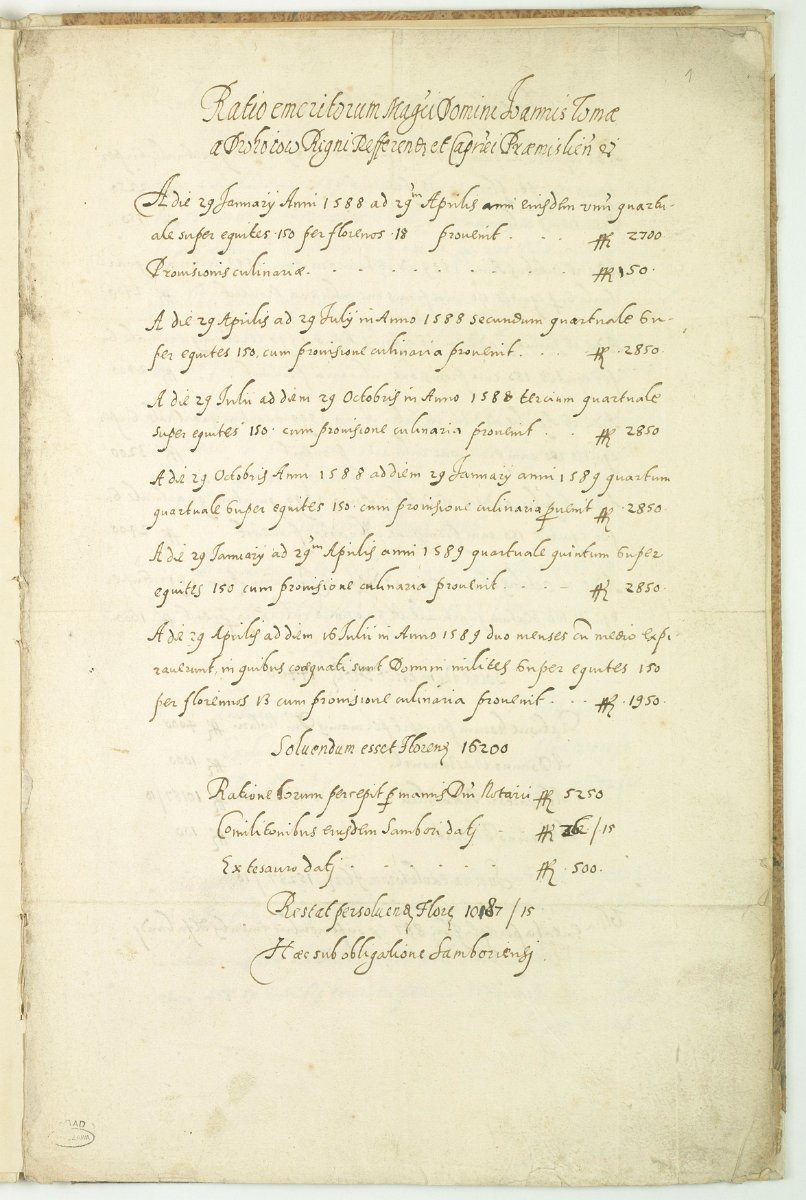 1
Ratio emeritorum Mag̃ci Domini Ioannis Tomæ
a Drohoiow Regni Refferend et Capnei Præmislien̄
A die 29 Januarij Anni 1588 ad 29m Aprilis anni eiusdem vnū quartu-
ale super equites 150 per florenos 18 prouenit . . . ff 2700
Prouisionis culinariæ . . . . . . . ff 150.
A die 29 Aprilis ad 29 Iulij in Anno 1588 secundum quartuale su-
per equites 150. cum prouisione culinaria prouenit . . . ff .2850.
A die 29 Iulii ad diem 29 Octobris in Anno 1588 tercium quartuale
super equites 150. cum prouisione culinaria prouenit . . ff 2850
A die 29 Octobris Anni 1588 ad diem 29 Ianuarij anni 1589 quartum
quartuale super equites 150. cum prouisione culinaria ꝓuenit ff .2850.
A die 29 Ianuarij ad 29m Aprilis anni 1589 quartuale quintum super
equites 150 cum prouisione culinaria prouenit . . . - ff 2850.
A die 29 Aprilis ad diem 16 Iulii in Anno 1589 duo menses cū medio expi-
rauerunt, in quibus coæquati sunt Domini milites super equites 150
per florennos 13 cum prouisione culinaria prouenit . . . ff .1950.
Soluendum esset Floren 16200
Ratione horum percepit ꝑ manus Dn̄i Notarii ff 5250
Comilitonibus eiusdem Sambori datj . . ff 262/15
Ex tesauro datj . . . . . . . ff .500.
Restat persoluen Flore 10187/15
Hæc sub obligatione Samboriensj.